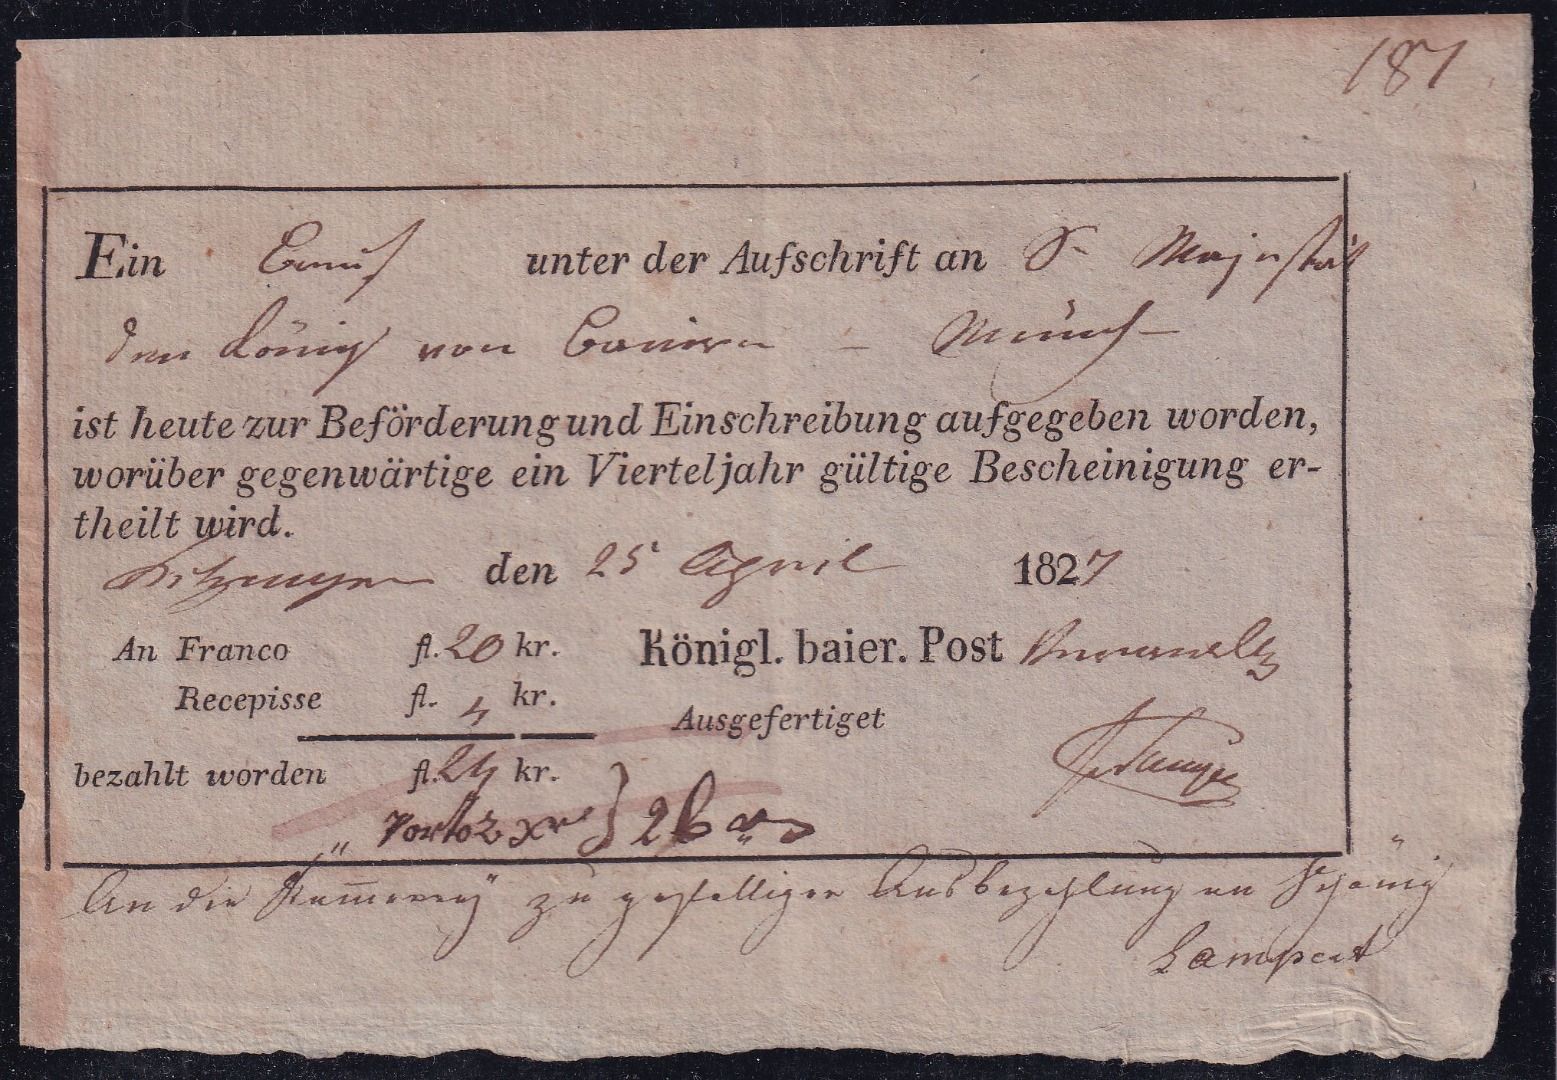 181
Ein Brief unter der Aufschrift an Sr Majestät
den König von Baiern – Münch
ist heute zur Beförderung und Einschreibung aufgegeben worden,
worüber gegenwärtige ein Vierteljahr gültige Bescheinigung er-
theilt wird.
Kitzingen den 25 April 1827
An Franco fl. 20 kr. Königl. baier. Post
Recepisse fl. 4 kr.
Ausgefertiget
bezahlt worden fl. 24 kr.
" Porto 2 xr } 26 xr
An die Kämerey zu gefälliger Ausbezahlung an
Lampert